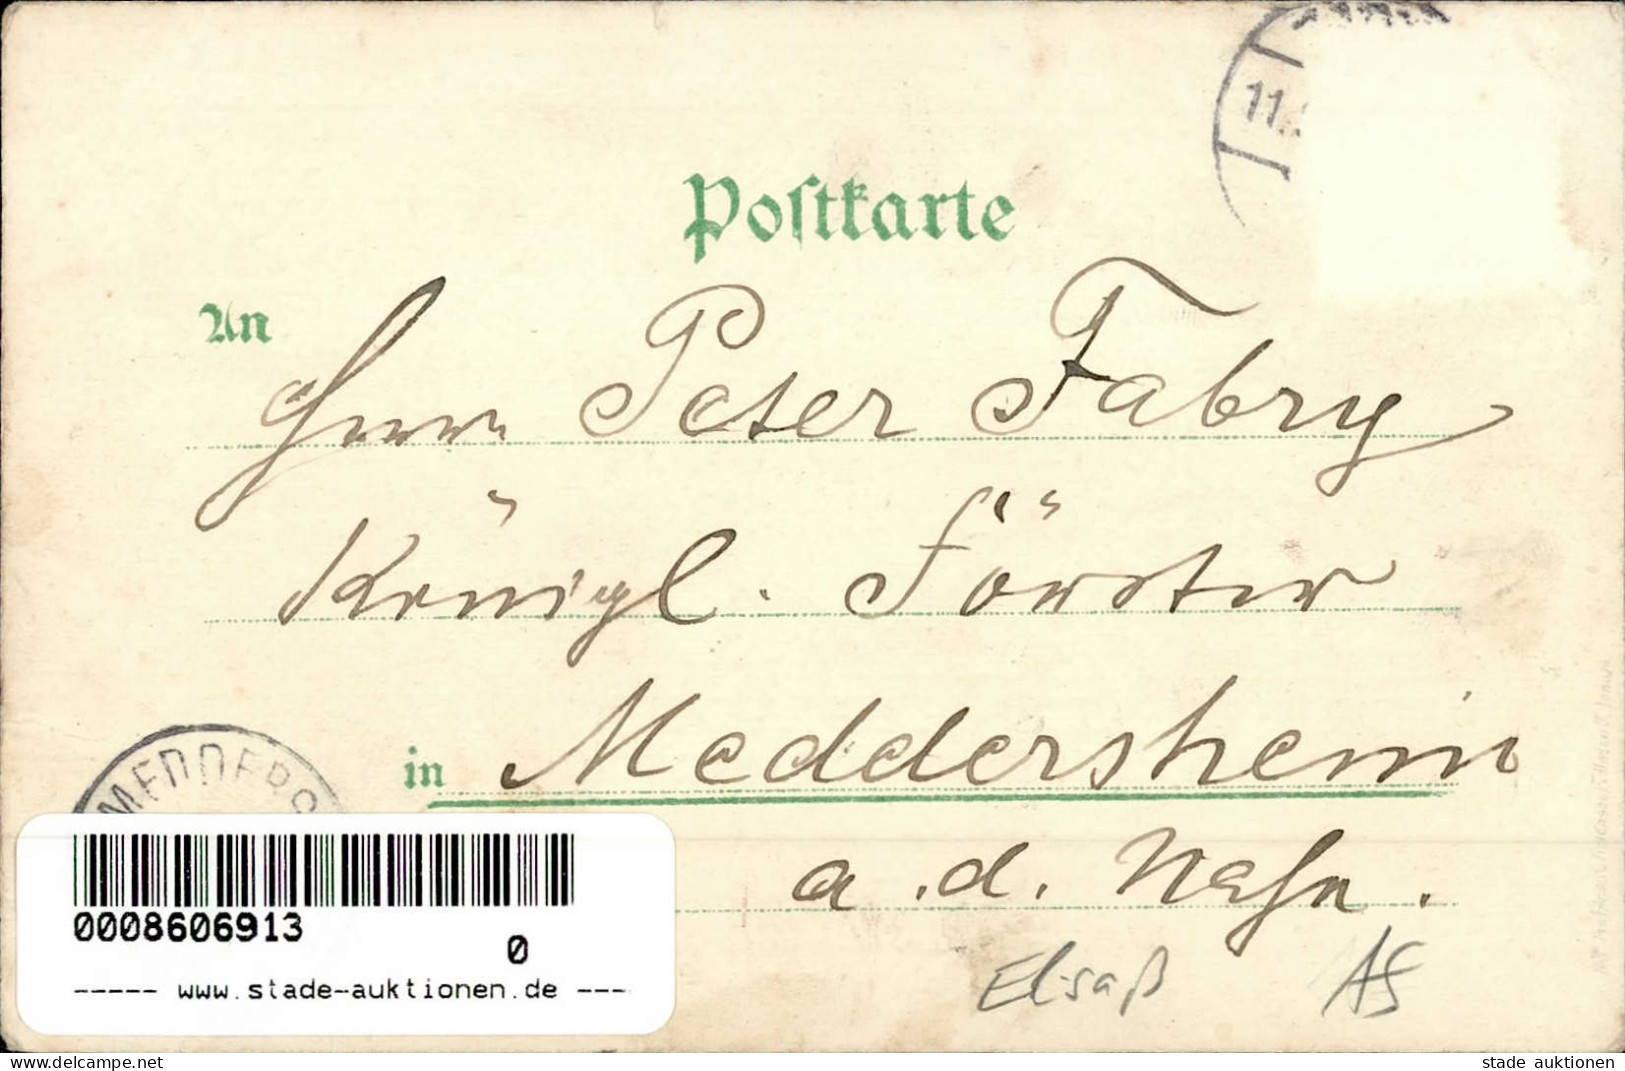 11.
Postkarte
An
Herrn Peter Fabry
Königl. Förster
in Meddersheim
a. d. Nahe.
MEDDERS
Elsaß AS
0008606913
0
----- www.stade-auktionen.de ---
stade auktionen
www.delcampe.net